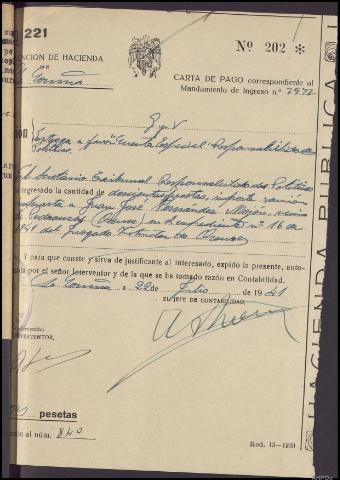 221
Nº 202 *
ENCION DE HACIENDA
DE
La Coruña
CARTA DE PAGO correspondiente al
Mandamiento de Ingreso n.º 2972
Entrega a favor Cuenta Especial Responsabilidades
Políticas
Secretario Tribunal Responsabilidades Políticas
ingresado la cantidad de doscientas pesetas, importe sanción
impuesta a Juan José Fernández vecino
de (Orense) en expediente nº 16 de
1941 del Juzgado Instructor de Orense
Y para que conste y sirva de justificante al interesado, expido la presente, auto-
zada por el señor Interventor y de la que se ha tomado razón en Contabilidad.
La Coruña a 22 de Julio de 1941
EL JEFE DE CONTABILIDAD,
NTERVENTOR,
pesetas
al núm. 840
Mod. 15-1939
HACIENDA PUBLICA